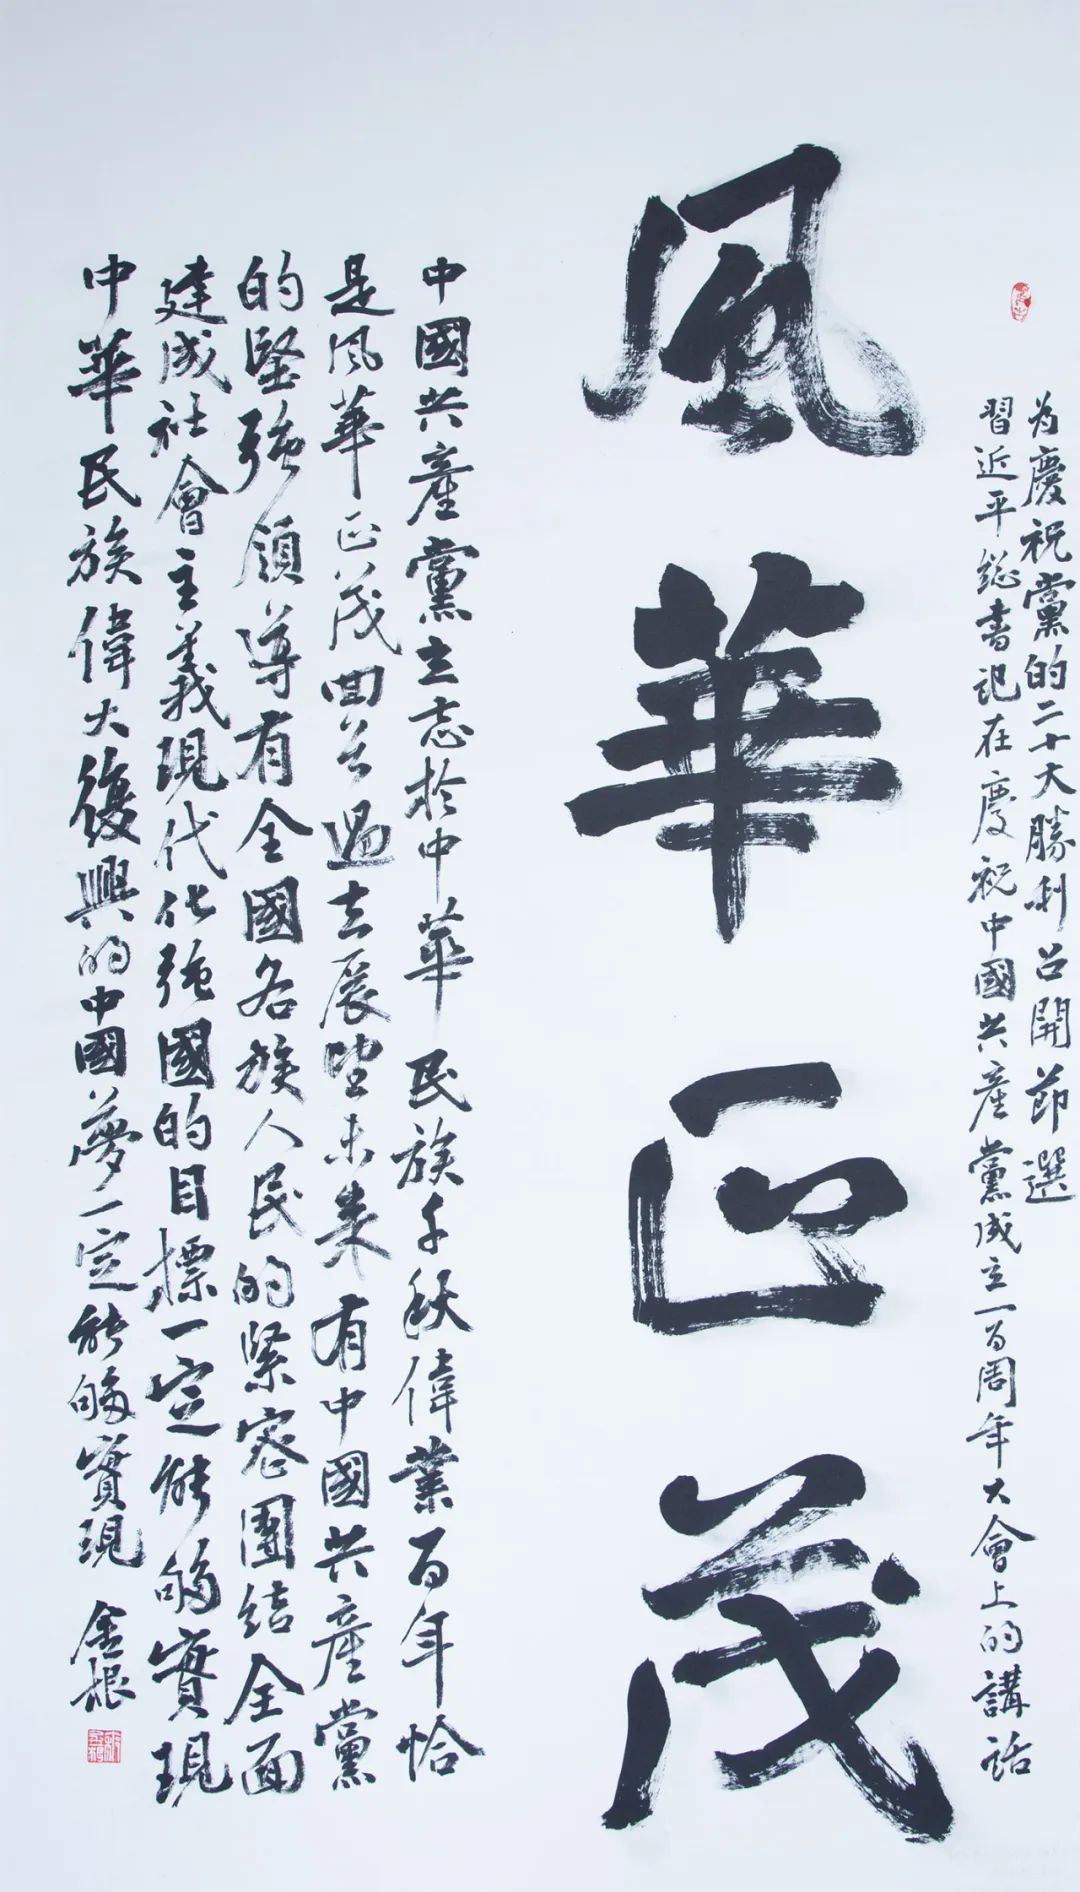 为慶祝黨的二十大勝利召開節選
習近平總書記在慶祝中國共産黨成立一百周年大會上的講話
風華正茂
中國共産黨立志於中華民族千秋偉業百年恰
是風華正茂回首過去展望未来有中國共産黨
的堅強領導有全國各族人民的緊密團結全面
建成社會主義現代化強國的目標一定能夠實現
中華民族偉大復興的中國夢一定能夠實現
金根